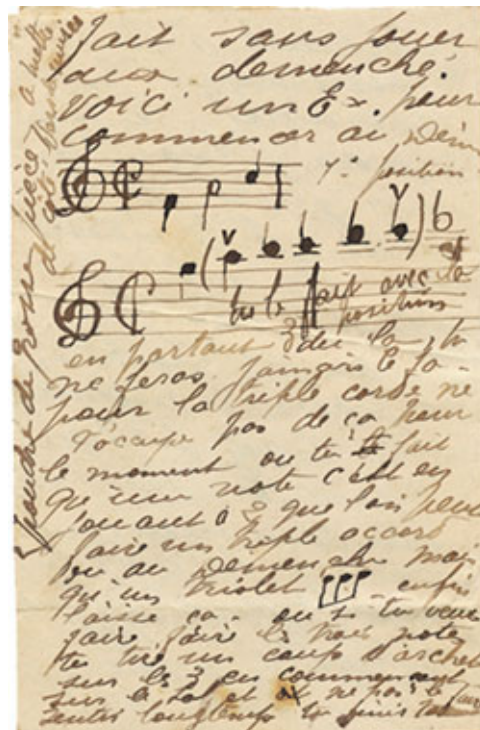 fait sans jouer
aux demenché.
voici un Ex. pour
commencer au Dém
1e position
tu le fait avec la
3 position
en partant du la, tu
ne feras jamais le la -
pour la triple corde ne
t'ocupe pas de ça pour
le moment ou tu fait
que une note c'est en
jouant à 3 que l'on peut
faire un triple accord
ou au Demenché mais
qu'un triolet enfin
laisse ça - ou si tu veux
faire faire les trois note
te tire un coup d'archet
sur les 3 en commençant
sur le sol et ne pas le faire
sentir longtemps tu finis
prendre de grosse pièce